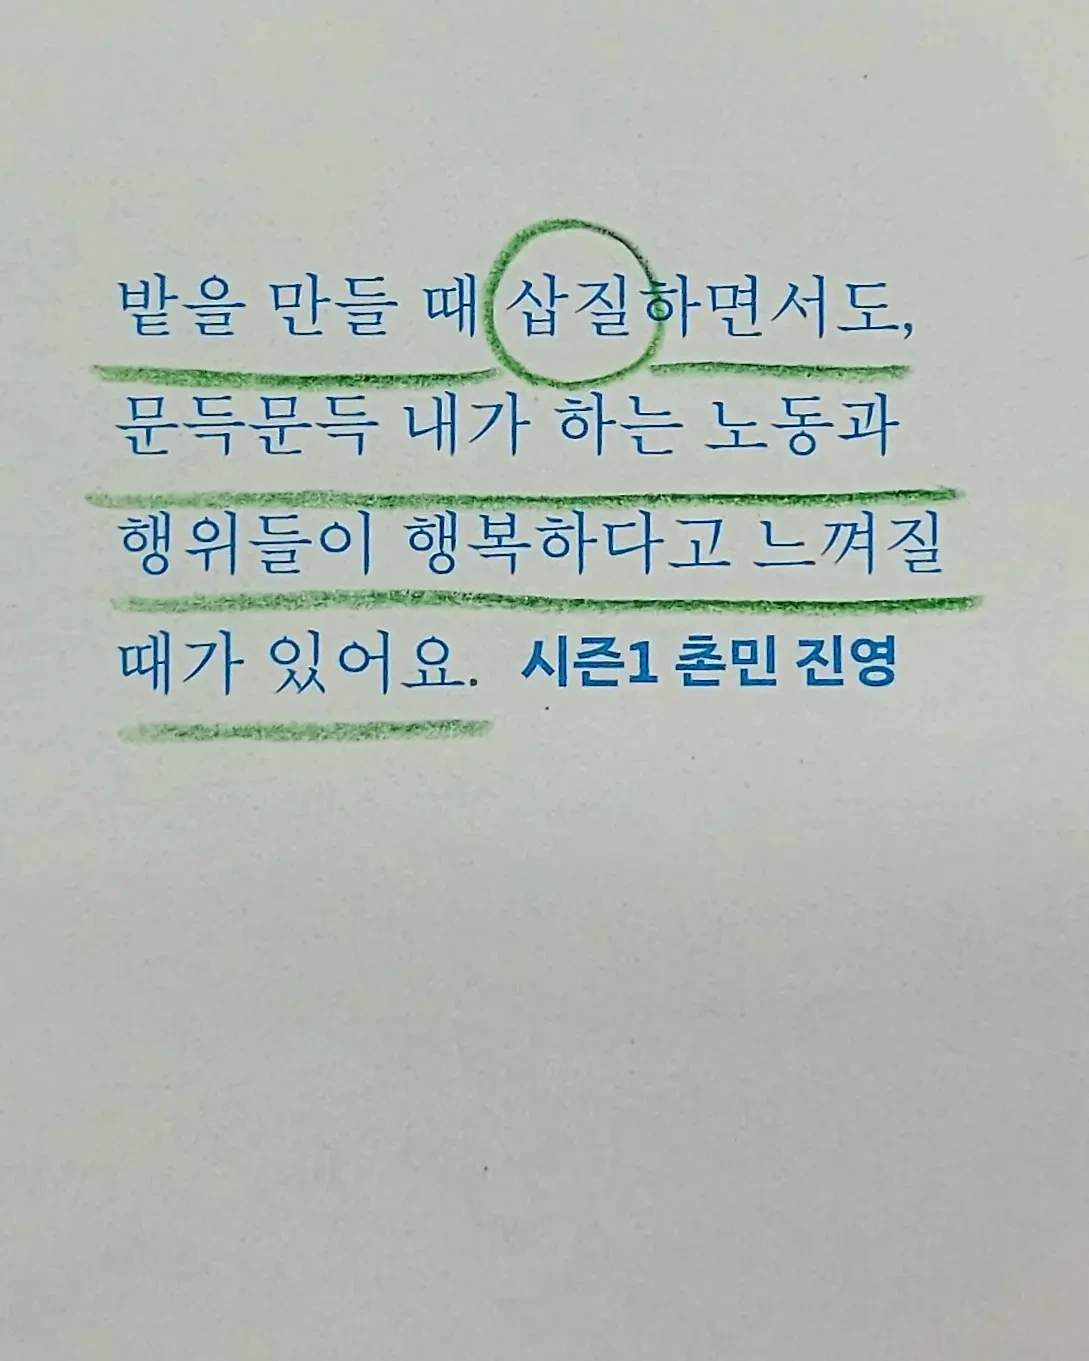 밭을 만들 때 삽질하면서도,
문득문득 내가 하는 노동과
행위들이 행복하다고 느껴질
때가 있어요. 시즌1 촌민 진영